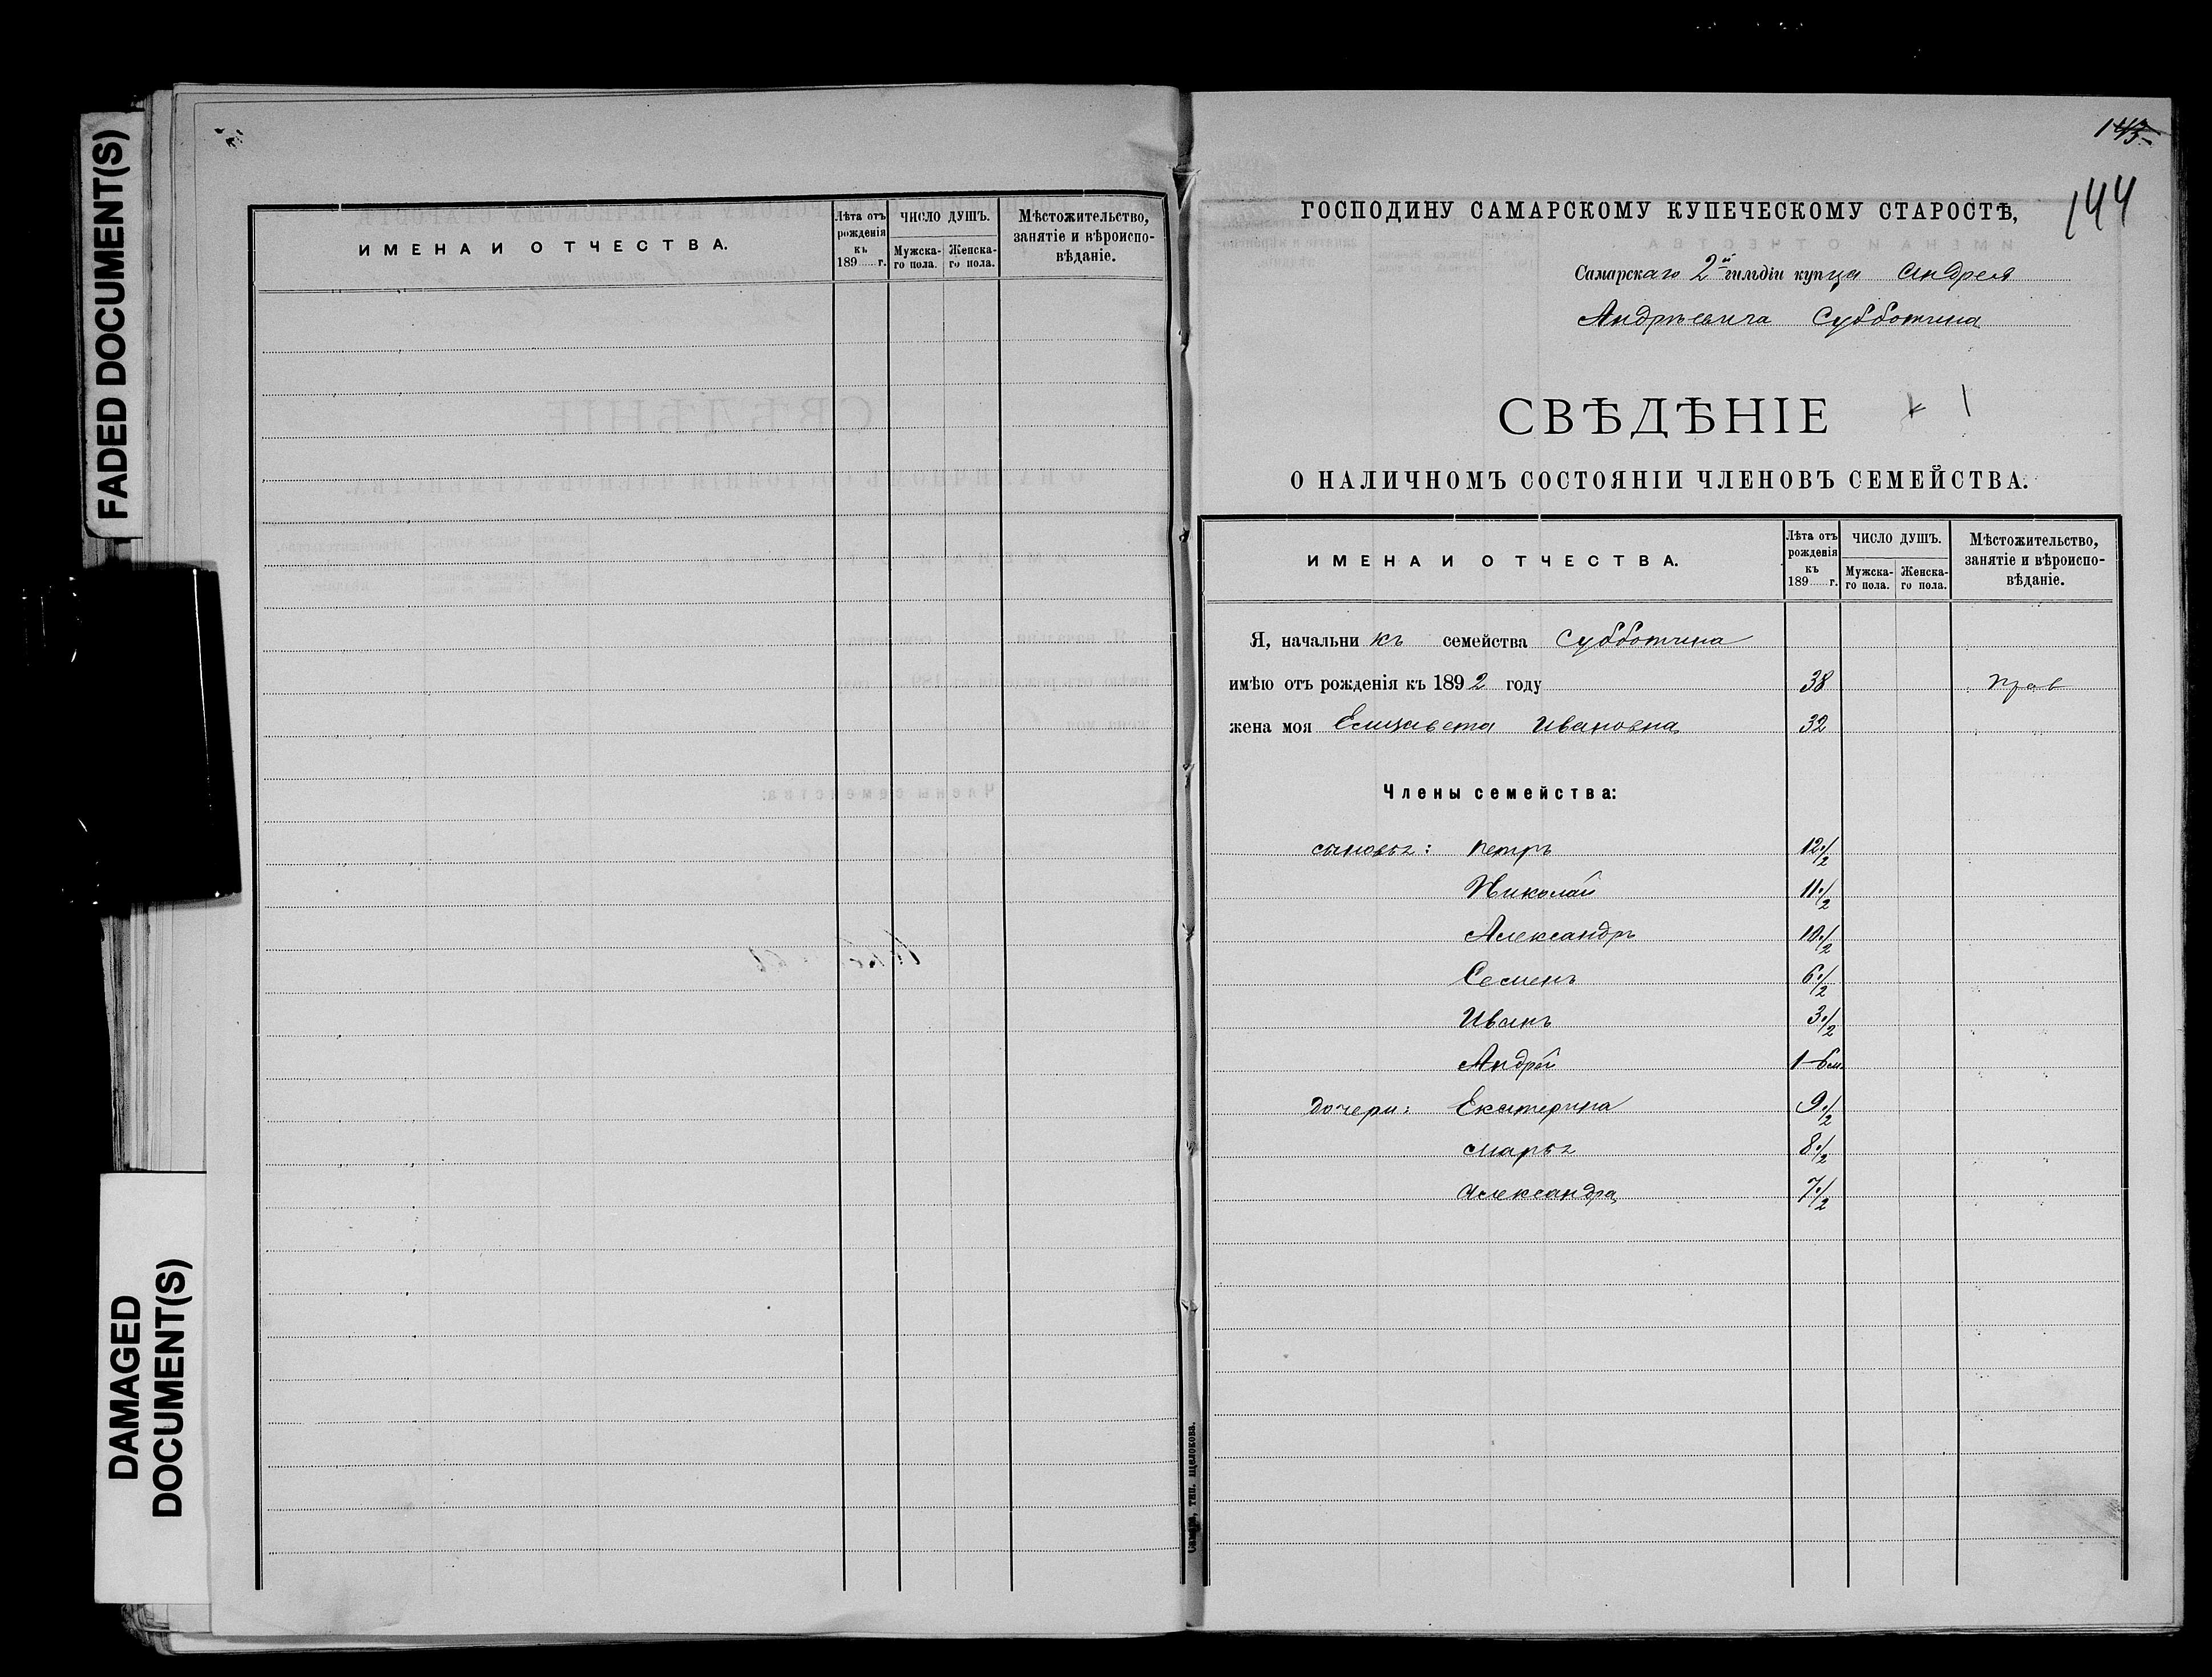 FADED DOCUMENT(S)
DAMAGED
DOCUMENT(S)
ИМЕНА И ОТЧЕСТВА.
Лѣта отъ рожденія къ 189 г.
ЧИСЛО ДУШЪ.
Мужска-го пола.
Женска-го пола.
Мѣстожительство, занятіе и вѣроиспо-вѣданіе.
Самара, тип. Щелокова.
143
144
ГОСПОДИНУ САМАРСКОМУ КУПЕЧЕСКОМУ СТАРОСТѢ,
Самарскаго 2й гильдіи купца Андрея
Андреевича Субботина
СВѢДѢНІЕ
О НАЛИЧНОМЪ СОСТОЯНІИ ЧЛЕНОВЪ СЕМЕЙСТВА.
ИМЕНА И ОТЧЕСТВА.
Лѣта отъ рожденія къ 189 г.
ЧИСЛО ДУШЪ.
Мужска-го пола.
Женска-го пола.
Мѣстожительство, занятіе и вѣроиспо-вѣданіе.
Я, начальникъ семейства Субботина
имѣю отъ рожденія къ 1892 году 38 прав
жена моя Елизавета Ивановна 32
Члены семейства:
сыновья: Петръ 12 1/2
Николай 11 1/2
Александръ 10 1/2
Семенъ 6 1/2
Иванъ 3 1/2
Андрей 1-6 м.
Дочери: Екатерина 9 1/2
Марья 8 1/2
Александра 7 1/2